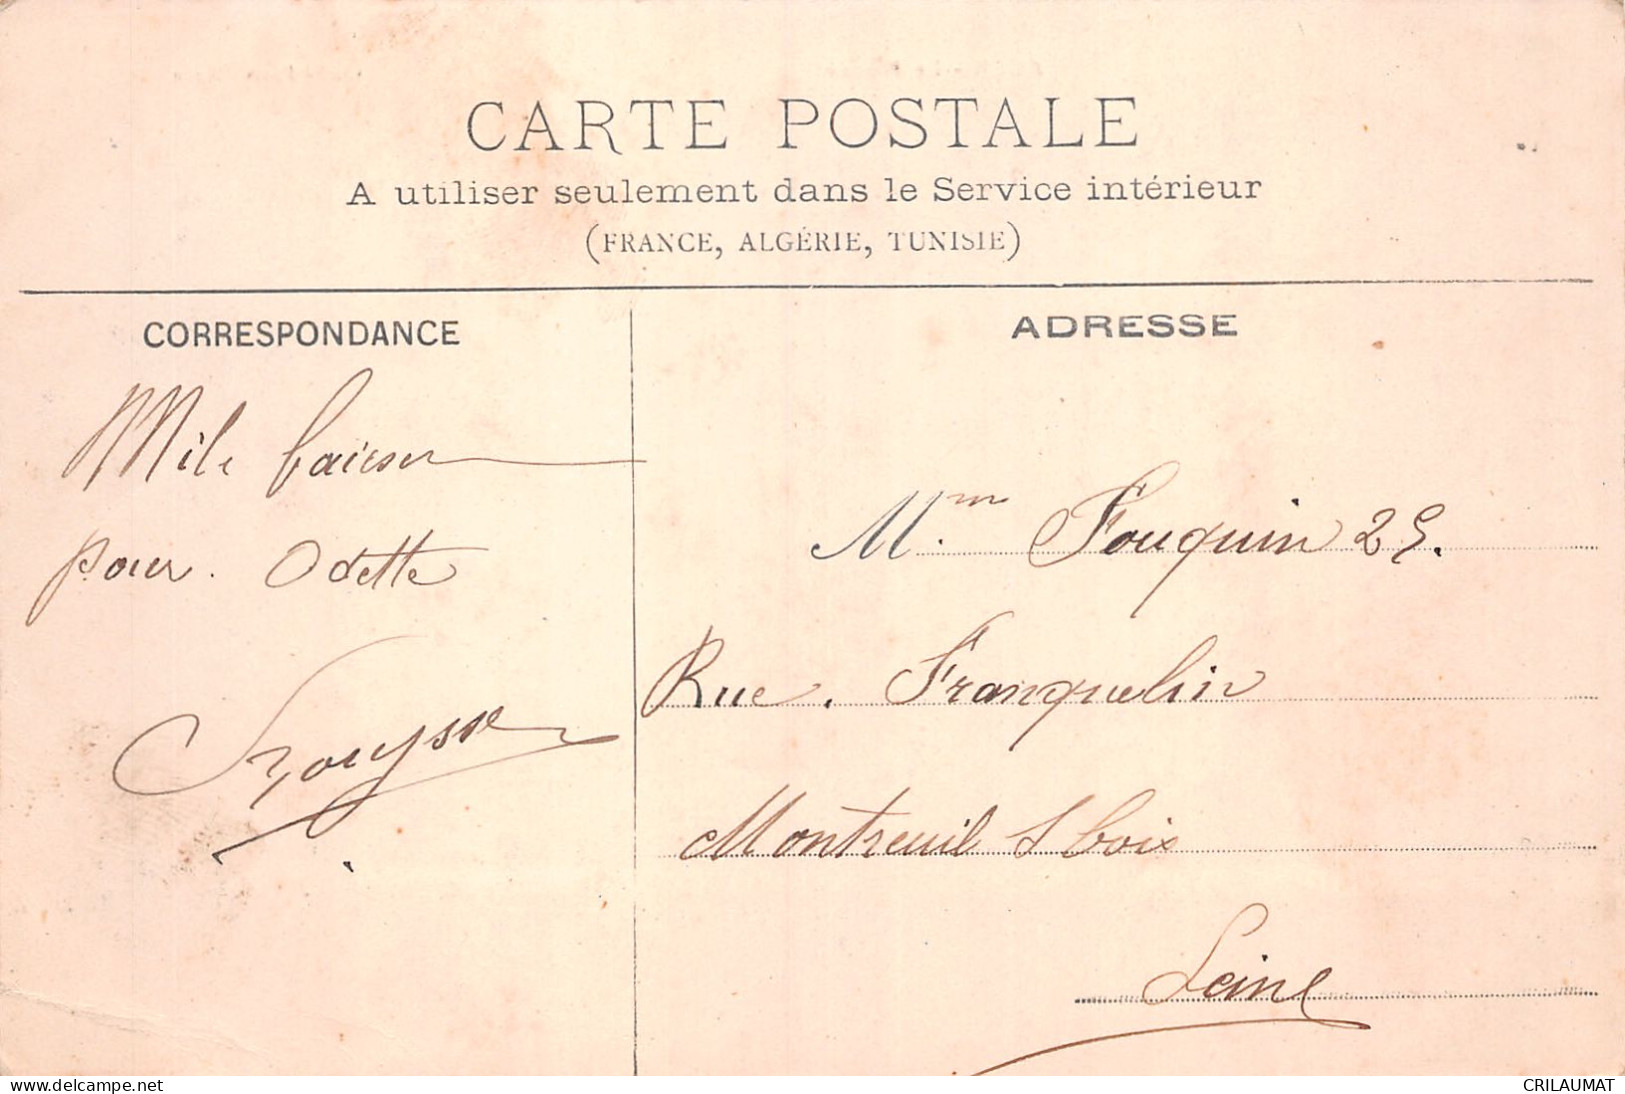 CARTE POSTALE
A utiliser seulement dans le Service intérieur
(FRANCE, ALGÉRIE, TUNISIE)
CORRESPONDANCE
Mile baiser
pour. Odette
ADRESSE
Mm Fouquin 25.
Rue. Franquelin
Montreuil s bois
Seine
www.delcampe.net
CRILAUMAT